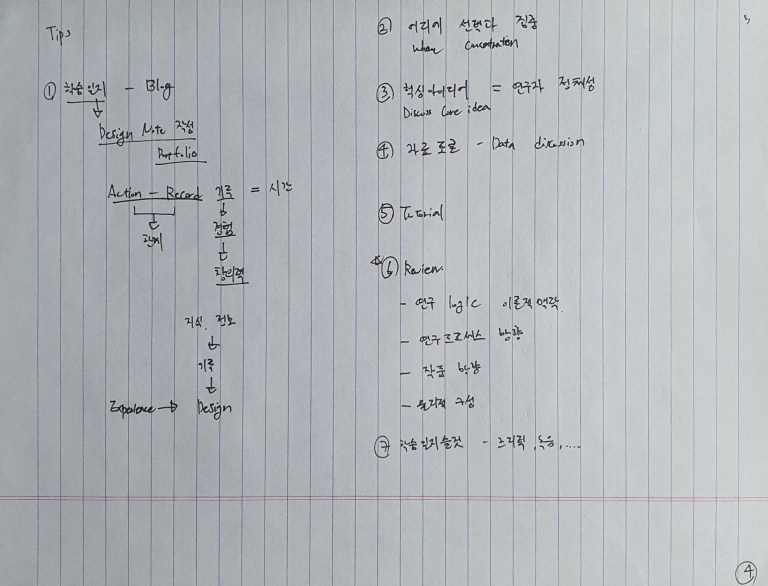 Tips
① 학습 일지 - Blog
Design Note 작성
Portfolio
Action - Record 기록 = 시간
관계
경험
창의력
지식, 정보
기록
Experience → Design
② 어디에 선택과 집중
when Concentration
③ 핵심아이디어 = 연구자 정체성
Discuss Core idea
④ 자료 토론 - Data discussion
⑤ Tutorial
⑥ Review
- 연구 logic 이론적 맥락
- 연구프로세스 방향
- 작품 방향
- 논리적 구성
⑦ 학습일지 쓸것 - 녹음, ....
④